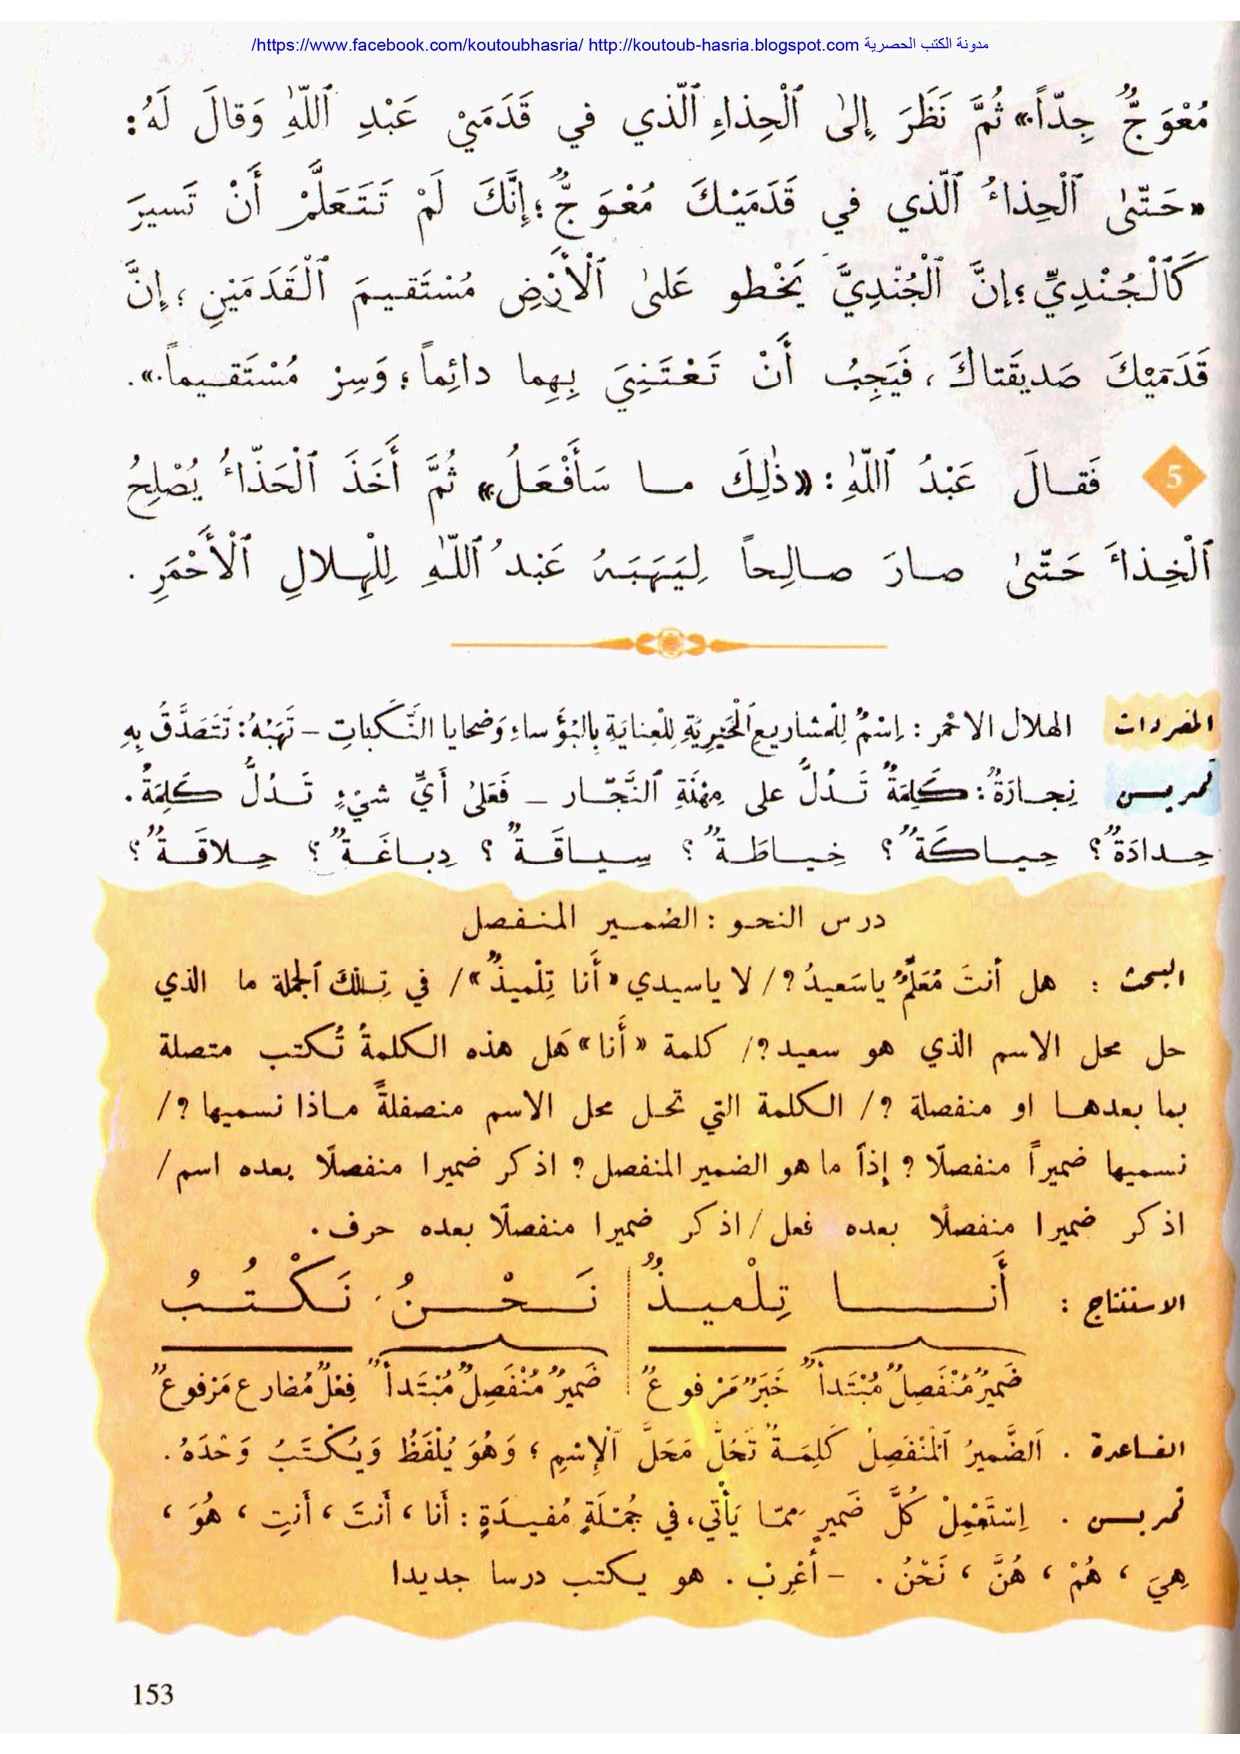 https://www.facebook.com/koutoubhasria/ http://koutoub-hasria.blogspot.com مدونة الكتب الحصرية/
مُعْوَجٌّ جِدّاً» ثُمَّ نَظَرَ إِلىٰ ٱلْحِذاءِ ٱلّذي في قَدَمَيْ عَبْدِ ٱللّٰهِ وَقالَ لَهُ:
«حَتّىٰ ٱلْحِذاءُ ٱلّذي في قَدَمَيْكَ مُعْوَجٌّ؛ إِنَّكَ لَمْ تَتَعَلَّمْ أَنْ تَسيرَ
كَٱلْجُنْدِيِّ؛ إِنَّ ٱلْجُنْدِيَّ يَخْطو عَلىٰ ٱلْأَرْضِ مُسْتَقيمَ ٱلْقَدَمَيْنِ؛ إِنَّ
قَدَمَيْكَ صَديقَتاكَ، فَيَجِبُ أَنْ تَعْتَنِيَ بِهِما دائِماً؛ وَسِرْ مُسْتَقيماً.».
5 فَقالَ عَبْدُ ٱللّٰهِ: «ذٰلِكَ ما سَأَفْعَلُ» ثُمَّ أَخَذَ ٱلْحَذّاءُ يُصْلِحُ
ٱلْحِذاءَ حَتّىٰ صارَ صالِحاً لِيَهَبَهُ عَبْدُ ٱللّٰهِ لِلْهِلالِ ٱلْأَحْمَرِ.
المفردات الهلال الاحمر: اِسْمٌ لِلْمَشاريعِ ٱلْخَيْرِيَّةِ لِلْعِنايَةِ بِالْبُؤَساءِ وَضحايا النَّكَباتِ – تَهَبُهُ: تَتَصَدَّقُ بِهِ
تمريس نِجارَةٌ: كَلِمَةٌ تَدُلُّ على مِهْنَةِ ٱلنَّجّار – فَعَلىٰ أَيِّ شَيْءٍ تَدُلُّ كَلِمَةُ.
حِدادَةٌ؟ حِياكَةٌ؟ خِياطَةٌ؟ سِياقَةٌ؟ دِباغَةٌ؟ حِلاقَةٌ؟
درس النحو: الضمير المنفصل
البحث: هل أنتَ مُعَلِّمٌ ياسَعيدُ؟/ لا ياسيدي «أَنا تِلْميذٌ»/ في تِلْكَ ٱلجملة ما الذي
حل محل الاسم الذي هو سعيد؟/ كلمة «أَنا» هَل هذه الكلمةُ تُكتب متصلة
بما بعدها او منفصلة؟/ الكلمة التي تحل محل الاسم منصفلةً ماذا نسميها؟/
نسميها ضميراً منفصلًا؟ إذاً ما هو الضمير المنفصل؟ اذكر ضميرا منفصلًا بعده اسم/
اذكر ضميرا منفصلًا بعده فعل/ اذكر ضميرا منفصلًا بعده حرف.
الاستنتاج: أَنا تِلْميذٌ نَحْنُ نَكْتُبُ
ضَميرٌ مُنْفَصِلٌ مُبْتَدأٌ خَبَرٌ مَرْفوعٌ ضَميرٌ مُنْفَصِلٌ مُبْتَدأٌ فِعْلٌ مُضارعٌ مَرْفوعٌ
القاعدة. اَلضَّميرُ ٱلْمُنْفَصِلُ كَلِمَةٌ تَحُلُّ مَحَلَّ ٱلْإِسْمِ؛ وَهُوَ يُلْفَظُ وَيُكْتَبُ وَحْدَهُ.
تمريس. اِسْتَعْمِلْ كُلَّ ضَميرٍ ممّا يَأْتي، في جُمْلَةٍ مُفيدَةٍ: أَنا، أَنتَ، أَنتِ، هُوَ،
هِيَ، هُمْ، هُنَّ، نَحْنُ. – أَعْرِبْ. هو يكتب درسا جديدا
153